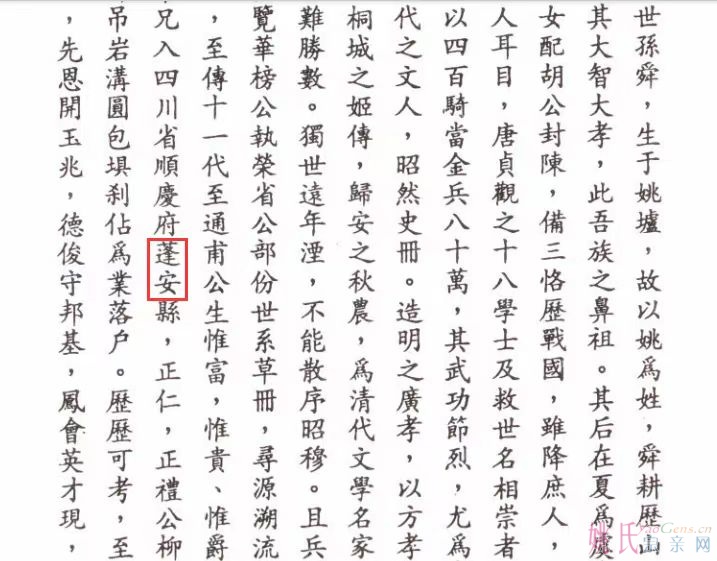 世孫舜，生于姚墟，故以姚爲姓，舜耕歷山
其大智大孝，此吾族之鼻祖。其后在夏爲虞
女配胡公封陳，備三恪歷戰國，雖降庶人，
人耳目，唐貞觀之十八學士及救世名相崇者
以四百騎當金兵八十萬，其武功節烈，尤爲
代之文人，昭然史冊。造明之廣孝，以方孝
桐城之姬傳，歸安之秋農，爲清代文學名家
難勝數。獨世遠年湮，不能散序昭穆。且兵
覽華榜公執榮省公部份世系草冊，尋源溯流
，至傳十一代至通甫公生惟富，惟貴、惟爵
兄入四川省順慶府蓬安縣，正仁，正禮公柳
吊岩溝圓包埧剎佔爲業落户。歷歷可考，至
，先恩開玉兆，德俊守邦基，鳳會英才現，
姚氏宗亲网
YaoGens.cn